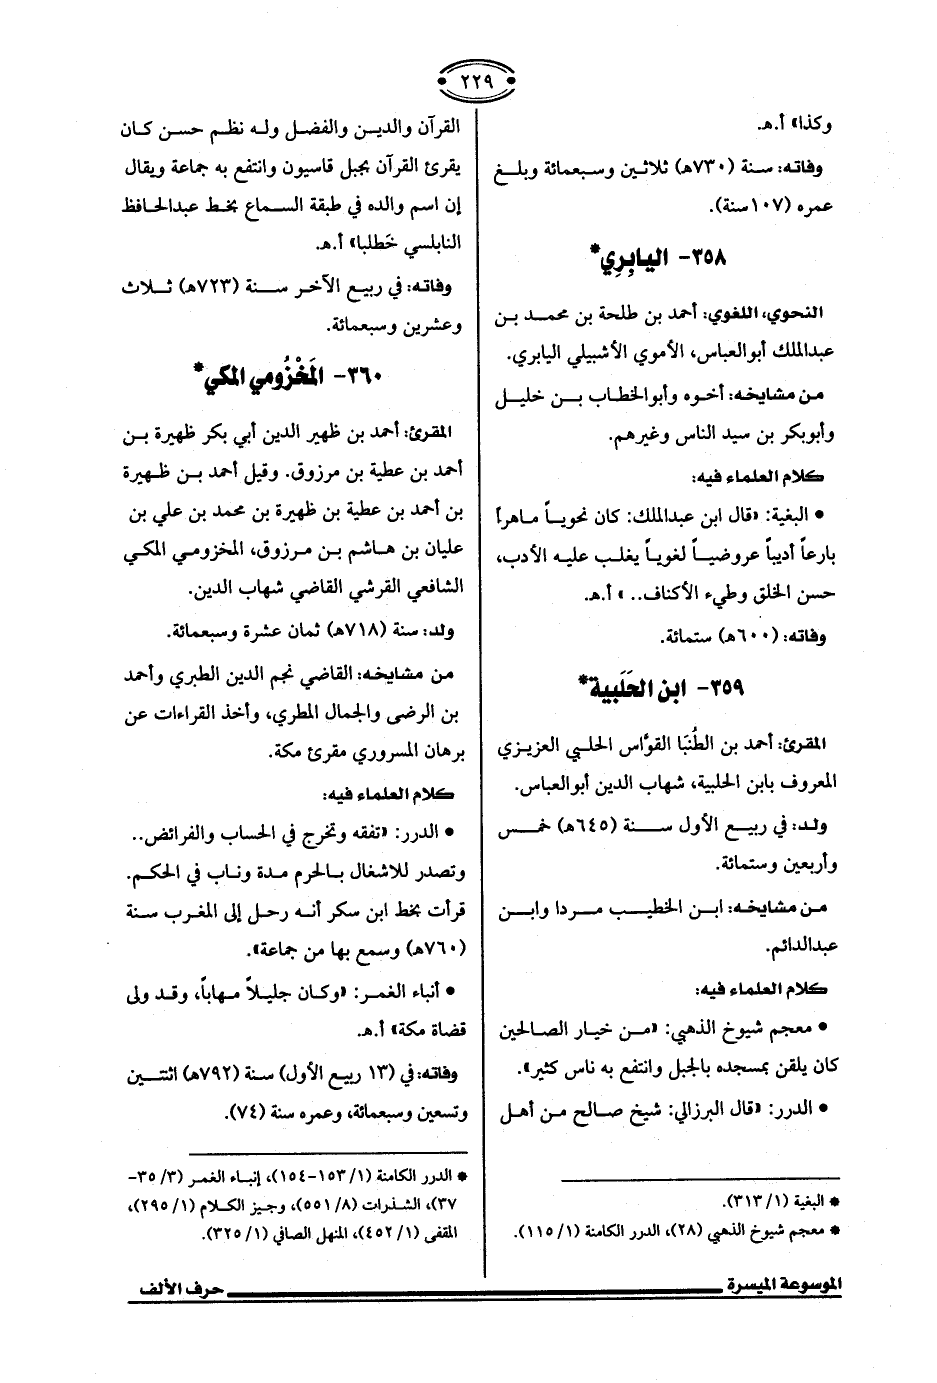 ٢٢٩
وكذا» أ.هـ.
وفاته: سنة (٧٣٠هـ) ثلاثين وسبعمائة وبلغ
عمره (١٠٧سنة).
٣٥٨- اليابِرِي*
النحوي، اللغوي: أحمد بن طلحة بن محمد بن
عبدالملك أبوالعباس، الأموي الأشبيلي اليابري.
من مشايخه: أخوه وأبوالخطاب بن خليل
وأبوبكر بن سيد الناس وغيرهم.
كلام العلماء فيه:
• البغية: «قال ابن عبدالملك: كان نحوياً ماهراً
بارعاً أديباً عروضياً لغوياً يغلب عليه الأدب،
حسن الخلق وطيء الأكناف.. » أ.هـ.
وفاته: (٦٠٠هـ) ستمائة.
٣٥٩- ابن الحَلَبية*
المقرئ: أحمد بن الطُنبَا القوَّاس الحلبي العزيزي
المعروف بابن الحلبية، شهاب الدين أبوالعباس.
ولد: في ربيع الأول سنة (٦٤٥هـ) خمس
وأربعين وستمائة.
من مشايخه: ابن الخطيب مردا وابن
عبدالدائم.
كلام العلماء فيه:
• معجم شيوخ الذهبي: «من خيار الصالحين
كان يلقن بمسجده بالجبل وانتفع به ناس كثير».
• الدرر: «قال البرزالي: شيخ صالح من أهل
* البغية (١/ ٣١٣).
* معجم شيوخ الذهبي (٢٨)، الدرر الكامنة (١/ ١١٥).
القرآن والدين والفضل وله نظم حسن كان
يقرئ القرآن بجبل قاسيون وانتفع به جماعة ويقال
إن اسم والده في طبقة السماع بخط عبدالحافظ
النابلسي خَطلبا» أ.هـ.
وفاته: في ربيع الآخر سنة (٧٢٣هـ) ثلاث
وعشرين وسبعمائة.
٣٦٠- المَخْزُومي المكي*
المقرئ: أحمد بن ظهير الدين أبي بكر ظهيرة بن
أحمد بن عطية بن مرزوق. وقيل أحمد بن ظهيرة
بن أحمد بن عطية بن ظهيرة بن محمد بن علي بن
عليان بن هاشم بن مرزوق، المخزومي المكي
الشافعي القرشي القاضي شهاب الدين.
ولد: سنة (٧١٨هـ) ثمان عشرة وسبعمائة.
من مشايخه: القاضي نجم الدين الطبري وأحمد
بن الرضى والجمال المطري، وأخذ القراءات عن
برهان المسروري مقرئ مكة.
كلام العلماء فيه:
• الدرر: «تفقه وتخرج في الحساب والفرائض..
وتصدر للاشغال بالحرم مدة وناب في الحكم.
قرأت بخط ابن سكر أنه رحل إلى المغرب سنة
(٧٦٠هـ) وسمع بها من جماعة».
• أنباء الغمر: «وكان جليلاً مهاباً، وقد ولى
قضاة مكة» أ.هـ.
وفاته: في (١٣ ربيع الأول) سنة (٧٩٢هـ) اثنتين
وتسعين وسبعمائة، وعمره سنة (٧٤).
* الدرر الكامنة (١/ ١٥٣-١٥٤)، إنباء الغمر (٣/ ٣٥-
٣٧)، الشذرات (٨/ ٥٥١)، وجيز الكلام (١/ ٢٩٥)،
المقفى (١/ ٤٥٢)، المنهل الصافي (١/ ٣٢٥).
الموسوعة الميسرة
حرف الألف